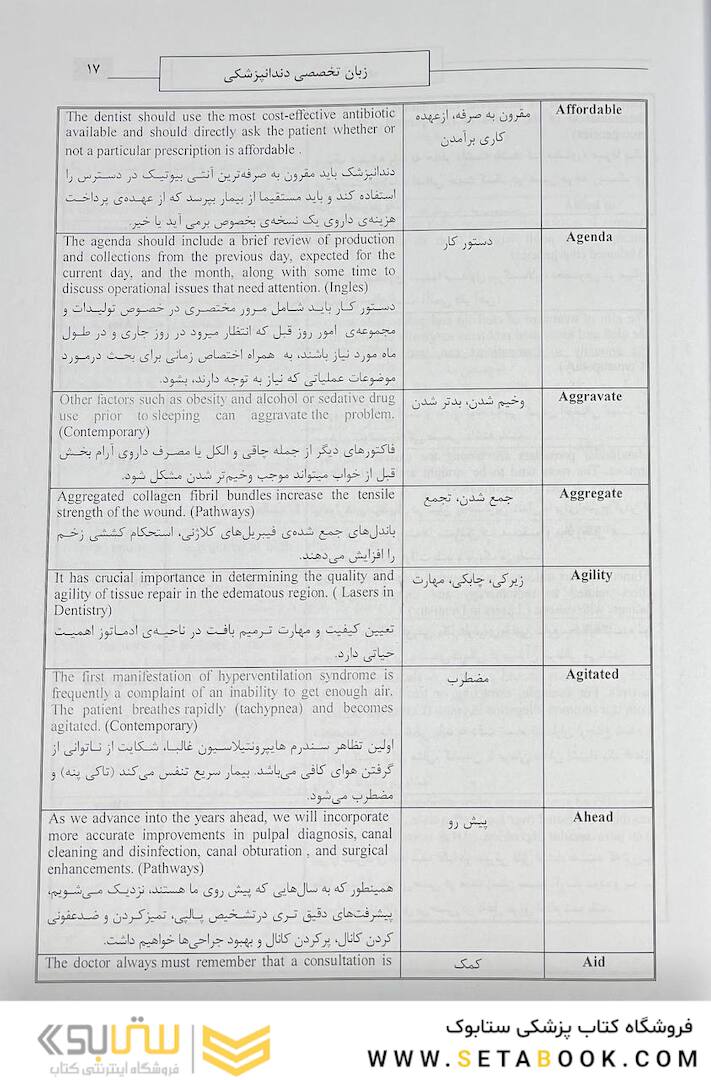 زبان تخصصی دندانپزشکی
۱۷
The dentist should use the most cost-effective antibiotic
available and should directly ask the patient whether or
not a particular prescription is affordable .
دندانپزشک باید مقرون به صرفه‌ترین آنتی بیوتیک در دسترس را
استفاده کند و باید مستقیما از بیمار بپرسد که از عهده‌ی پرداخت
هزینه‌ی داروی یک نسخه‌ی بخصوص برمی آید یا خیر.
مقرون به صرفه، ازعهده
کاری برآمدن
Affordable
The agenda should include a brief review of production
and collections from the previous day, expected for the
current day, and the month, along with some time to
discuss operational issues that need attention. (Ingles)
دستور کار باید شامل مرور مختصری در خصوص تولیدات و
مجموعه‌ی امور روز قبل که انتظار میرود در روز جاری و در طول
ماه مورد نیاز باشند، به همراه اختصاص زمانی برای بحث درمورد
موضوعات عملیاتی که نیاز به توجه دارند، بشود.
دستور کار
Agenda
Other factors such as obesity and alcohol or sedative drug
use prior to sleeping can aggravate the problem.
(Contemporary)
فاکتورهای دیگر از جمله چاقی و الکل یا مصرف داروی آرام بخش
قبل از خواب میتواند موجب وخیم‌تر شدن مشکل شود.
وخیم شدن، بدتر شدن
Aggravate
Aggregated collagen fibril bundles increase the tensile
strength of the wound. (Pathways)
باندل‌های جمع شده‌ی فیبریل‌های کلاژنی، استحکام کششی زخم
را افزایش می‌دهند.
جمع شدن، تجمع
Aggregate
It has crucial importance in determining the quality and
agility of tissue repair in the edematous region. ( Lasers in
Dentistry)
تعیین کیفیت و مهارت ترمیم بافت در ناحیه‌ی ادماتوز اهمیت
حیاتی دارد.
زیرکی، چابکی، مهارت
Agility
The first manifestation of hyperventilation syndrome is
frequently a complaint of an inability to get enough air.
The patient breathes rapidly (tachypnea) and becomes
agitated. (Contemporary)
اولین تظاهر سندرم هایپرونتیلاسیون غالبا، شکایت از ناتوانی از
گرفتن هوای کافی می‌باشد. بیمار سریع تنفس می‌کند (تاکی پنه) و
مضطرب می‌شود.
مضطرب
Agitated
As we advance into the years ahead, we will incorporate
more accurate improvements in pulpal diagnosis, canal
cleaning and disinfection, canal obturation , and surgical
enhancements. (Pathways)
همینطور که به سال‌هایی که پیش روی ما هستند، نزدیک می‌شویم،
پیشرفت‌های دقیق تری درتشخیص پالپی، تمیزکردن و ضدعفونی
کردن کانال، پرکردن کانال و بهبود جراحی‌ها خواهیم داشت.
پیش رو
Ahead
The doctor always must remember that a consultation is
کمک
Aid
فروشگاه کتاب پزشکی ستابوک
WWW.SETABOOK.COM
ستابوک
فروشگاه اینترنتی کتاب